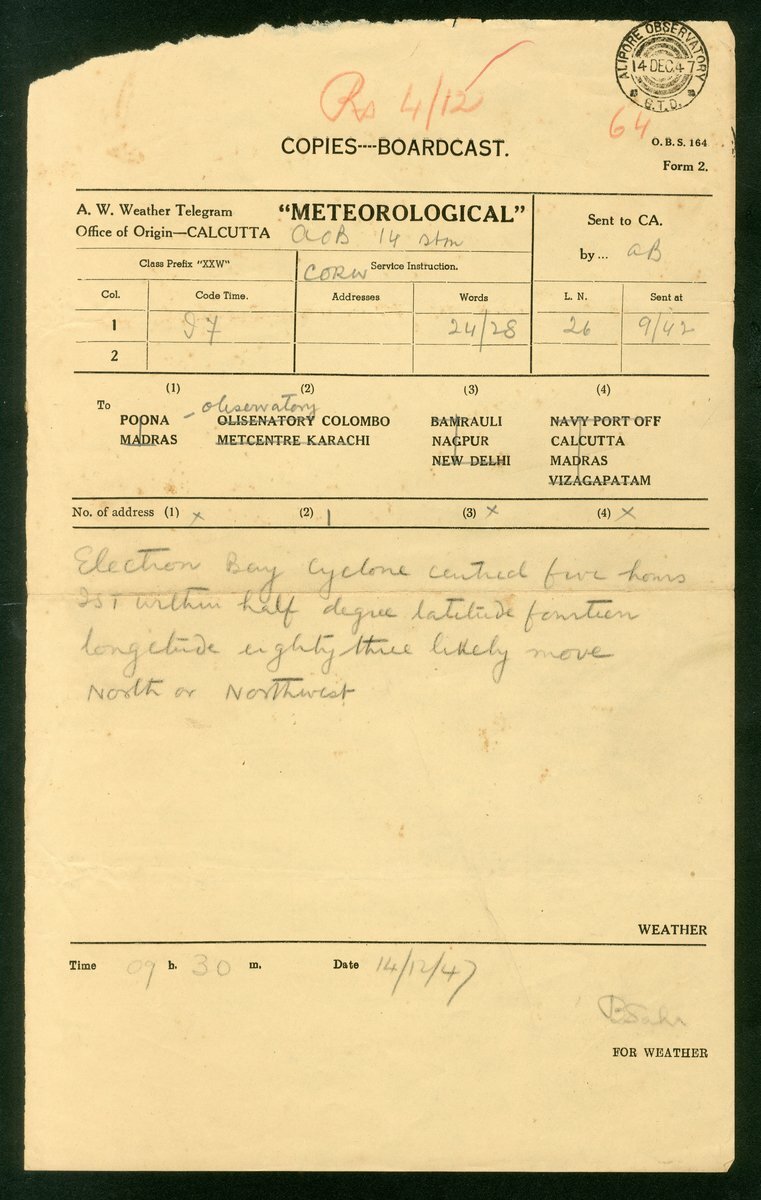 ALIPORE OBSERVATORY
14 DEC. 47
G.T.D.
Rs 4/12
64
COPIES----BOARDCAST.
O.B.S. 164
Form 2.
A. W. Weather Telegram "METEOROLOGICAL"
Office of Origin—CALCUTTA AOB 14 stm
Sent to CA.
by... AB
Class Prefix "XXW"
CORW Service Instruction.
Col. Code Time. Addresses Words L. N. Sent at
1 24/28 26 9/42
2
(1) (2) (3) (4)
To observatory
POONA OLISENATORY COLOMBO BAMRAULI NAVY PORT OFF
MADRAS METCENTRE KARACHI NAGPUR CALCUTTA
NEW DELHI MADRAS
VIZAGAPATAM
No. of address (1) x (2) 1 (3) x (4) x
Election Bay Cyclone centred five hours
IST within half degree latitude fourteen
longitude eighty three likely move
North or Northwest
WEATHER
Time 09 h. 30 m. Date 14/12/47
FOR WEATHER